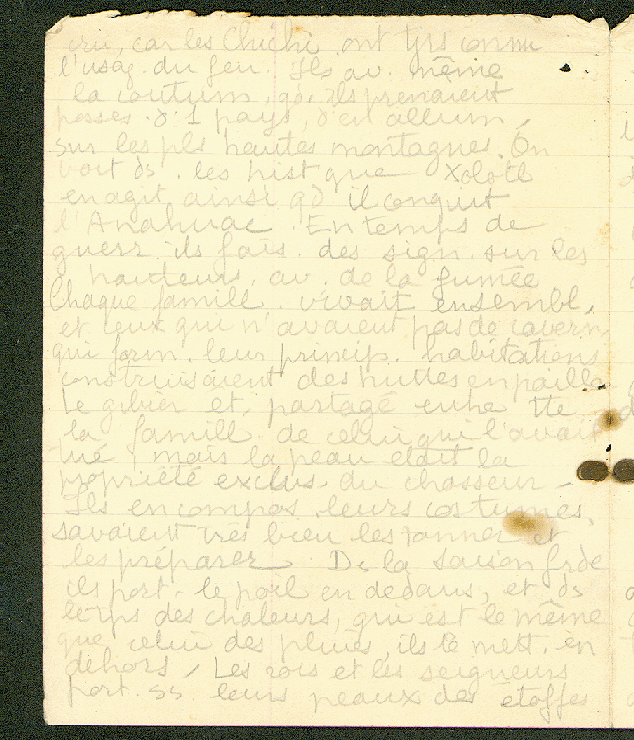 cru, car les Chichi. ont tjrs connu
l'usag. du feu. Ils av. même
la coutum, qd, ils prenaient
posses. d'1 pays, d'en allum.
sur les pls hautes montagnes. On
voit ds. les hist que Xolotl
en agit ainsi qd il conquit
l'Anahuac. En temps de
guerr. ils fais. des sign. sur les
hauteurs. av. de la fumée
Chaque famill. vivait ensembl.
et ceux qui n'avaient pas de cavern
qui form. leur princip. habitations
construisaient des huttes en paille
Le gibier et. partagé entre tte
la famill. de celui qui l'avait
tué, mais la peau était la
propriété exclus. du chasseur.
Ils en compos. leurs costumes,
savaient très bien les tanner et
les préparer. Ds la saison frde
ils port. le poil en dedans, et ds
le tps des chaleurs, qui est le même
que celui des pluies, ils le mett. en
dehors. Les rois et les seigneurs
port. ss leurs peaux des étoffes